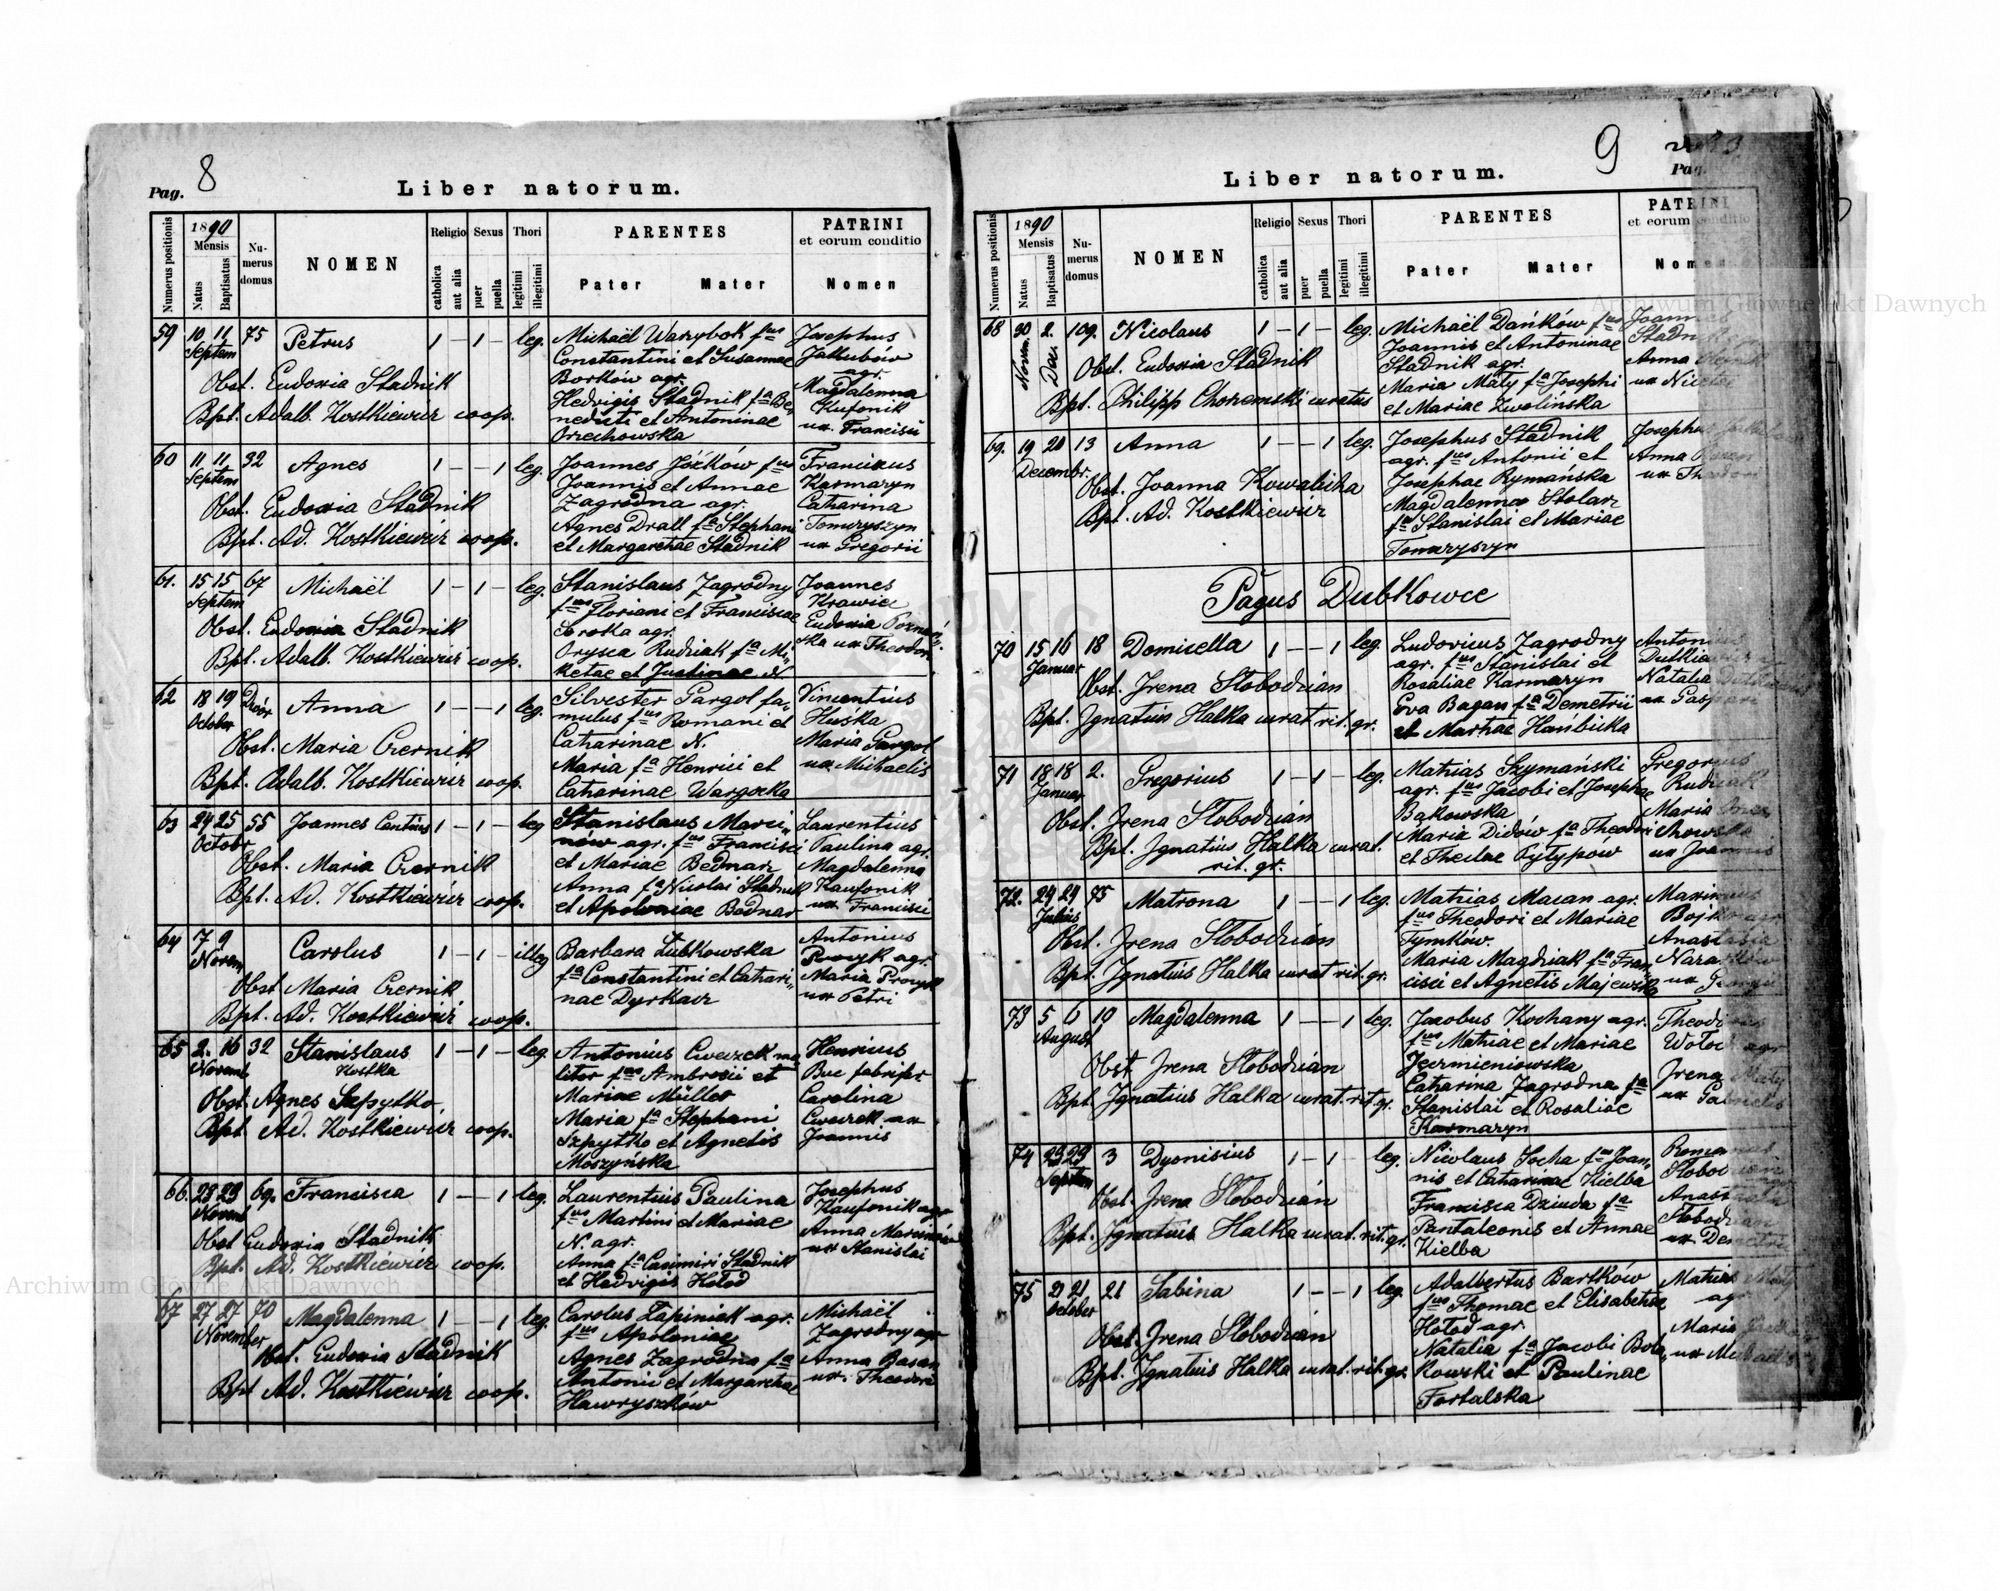 Pag. 8
Liber natorum.
Numerus positionis
1890
Mensis
Natus
Baptisatus
Nu-
merus
domus
NOMEN
Religio
catholica
aut alia
Sexus
puer
puella
Thori
legitimi
illegitimi
PARENTES
Pater Mater
PATRINI
et eorum conditio
Nomen
59 10 11 75 Petrus 1 – 1 – leg.
Septem
Obst. Eudoxia Stadnik
Bpt. Adalb. Kostkiewicz coop.
Michaël Warybok fus
Constantini et Susannae
Borków agr.
Hedvigis Stadnik fa Be-
nedicti et Antoninae
Orzechowska
Josephus
Jakubów
agr.
Magdalenna
Kufonik
ux. Francisci
60 11 11 32 Agnes 1 – – 1 leg.
Septem
Obst. Eudoxia Stadnik
Bpt. Ad. Kostkiewicz coop.
Joannes Józków fus
Joannis et Annae
Zagrodna agr.
Agnes Drall fa Stephani
et Margarethae Stadnik
Franciscus
Karmaryn
Catharina
Tomryszyn
ux Gregorii
61. 15 15 67 Michaël 1 – 1 – leg.
Septem
Obst. Eudoxia Stadnik
Bpt. Adalb. Kostkiewicz coop.
Stanislaus Zagrodny
fus Floriani et Franciscae
Soroka agr.
Orysca Rudziak fa Mi-
ketae et Justinae N.
Joannes
Krawiec
Eudoxia
ska ux Theodori
62 18 19 Anna 1 – – 1 leg.
October
Obst. Maria Czernik
Bpt. Adalb. Kostkiewicz coop.
Silvester Gargol fa-
mulus fus Romani et
Catharinae N.
Maria fa Henrici et
Catharinae Wargocka
Vincentius
Huska
Maria Gargol
ux Michaelis
63 24 25 55 Joannes Cantius 1 – 1 – leg
Octobr
Obst. Maria Czernik
Bpt. Ad. Kostkiewicz coop.
Stanislaus Marci-
nów agr. fus Francisci
et Mariae Bednarz
Anna fa Nicolai Stadnik
et Apoloniae Bednar
Laurentius
Paulina agr.
Magdalenna
Kaufonik
ux. Francisci
64 7 9 Carolus 1 – 1 – illeg
Novem
Obst Maria Czernik
Bpt. Ad. Kostkiewicz coop.
Barbara Lubkowska
fa Constantini et Cathari-
nae Dyrkacz
Antonius
Procyk agr.
Maria Procyk
ux Petri
65 2. 16 32 Stanislaus 1 – 1 – leg
Novemb Kostka
Obst. Agnes Szpytko
Bpt. Ad. Kostkiewicz coop.
Antonius Cweczek mo-
litor fus Ambrosii et
Mariae Müller
Maria fa Stephani
Szpytko et Agnetis
Moszyńska
Henricus
Buc
Carolina
Cweczek ux
Joannis
66. 28 29 69. Francisca 1 – – 1 leg.
Novemb
Obst Eudoxia Stadnik
Bpt. Ad. Kostkiewicz coop.
Laurentius Paulina
fus Martini et Mariae
N. agr.
Anna fa Casimiri Stadnik
et Hedvigis Hołod
Josephus
Kaufonik agr
Anna
ux Stanislai
67 27 27 70 Magdalenna 1 – – 1 leg.
November
Obst. Eudoxia Stadnik
Bpt Ad. Kostkiewicz coop.
Carolus Łapiniak agr.
fus Apoloniae
Agnes Zagrodna fa
Antonii et Margarethae
Hawryszków
Michaël
Zagrodny agr
Anna Basan
ux. Theodori
9
Pag.
Liber natorum.
Numerus positionis
1890
Mensis
Natus
Baptisatus
Nu-
merus
domus
NOMEN
Religio
catholica
aut alia
Sexus
puer
puella
Thori
legitimi
illegitimi
PARENTES
Pater Mater
PATRINI
et eorum conditio
Nomen
68 30 2. 109. Nicolaus 1 – 1 – leg.
Novem. Dec.
Obst. Eudoxia Stadnik
Bpt. Philipp Chozemski curatus
Michaël Dańków fus
Joannis et Antoninae
Stadnik agr.
Maria Mały fa Josephi
et Mariae Zwolińska
Joannes
Stadnik
Anna
ux
69. 19 20 13 Anna 1 – – 1 leg.
Decembr.
Obst. Joanna Kowalicha
Bpt. Ad. Kostkiewicz
Josephus Stadnik
agr. fus Antonii et
Josephae Rymańska
Magdalenna Stolarz
fa Stanislai et Mariae
Tomryszyn
Josephus
Anna
ux
Pagus Dubkowce
70 15 16 18 Domicella 1 – – 1 leg.
Januar
Obst. Irena Słobodzian
Bpt. Ignatius Halka curat. rit. gr.
Ludovicus Zagrodny
agr. fus Stanislai et
Rosaliae Karmaryn
Eva Bagan fa Demetrii
et Marthae Hańbicka
Antonius
Natalia
ux Gaspari
71 18 18 2. Gregorius 1 – 1 – leg.
Januar
Obst. Irena Słobodzian
Bpt. Ignatius Halka curat.
rit. gr.
Mathias Szymański
agr. fus Jacobi et Josephae
Bąkowska
Maria Didów fa Theodori
et Theclae Pytypów
Gregorius
Rudziak
Maria
chowska
ux Joannis
72. 24 24 75 Matrona 1 – – 1 leg.
Julius
Obst. Irena Słobodzian
Bpt. Ignatius Halka curat. rit. gr.
Mathias Macan agr.
fus Theodori et Mariae
Tymków.
Maria Magdziak fa Fran-
cisci et Agnetis Majewska
Maximus
Bojko
Anastasia
ux Georgii
73 5 6 10 Magdalenna 1 – – 1 leg.
August
Obst Irena Słobodzian
Bpt. Ignatius Halka curat. rit. gr.
Jacobus Kochany agr.
fus Mathiae et Mariae
Jeczmieniowska
Catharina Zagrodna fa
Stanislai et Rosaliae
Karmaryn
Irena
ux Gabrielis
74 29 29 3 Dyonisius 1 – 1 – leg.
Septem
Obst. Irena Słobodzian
Bpt. Ignatius Halka curat. rit. gr.
Nicolaus Socha fus Joan-
nis et Catharinae Kielba
Francisca Dziuda fa
Pantaleonis et Annae
Kielba
Romanus
Słobodzian
Anastasia
Słobodzian
ux Demetrii
75 21 21 21 Sabina 1 – – 1 leg.
October
Obst Irena Słobodzian
Bpt. Ignatius Halka curat. rit. gr.
Adalbertus Bartków
fus Thomae et Elisabethae
Hołod agr.
Natalia fa Jacobi Boła-
kowski et Paulinae
Fortalska
Mathias
agr
Maria
ux Michaelis
Archiwum Główne Akt Dawnych
Archiwum Główne Akt Dawnych